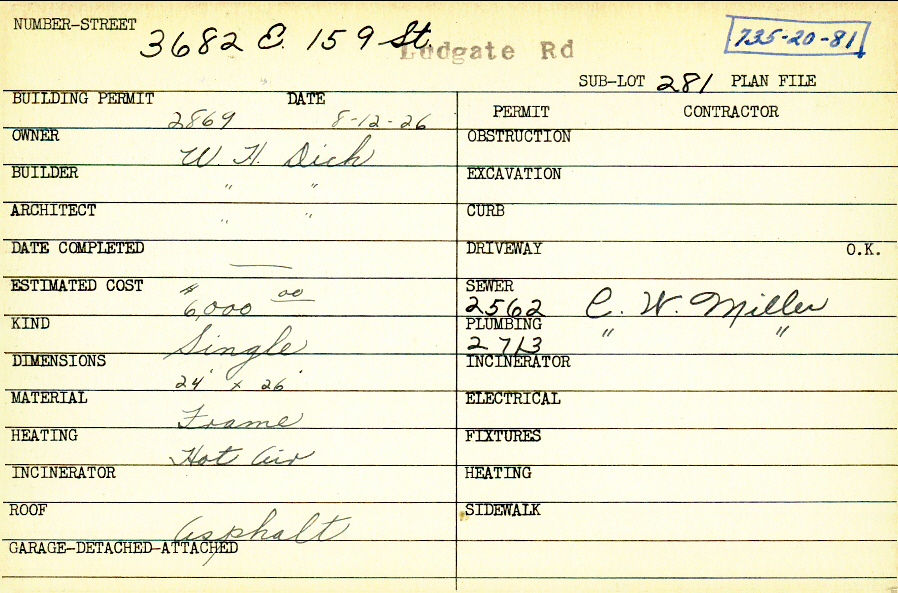 NUMBER-STREET 3682 E. 159 St. Ludgate Rd 735-20-81
SUB-LOT 281 PLAN FILE
BUILDING PERMIT DATE
2869 8-12-26
PERMIT CONTRACTOR
OWNER W. H. Dich
BUILDER " "
ARCHITECT " "
DATE COMPLETED —
ESTIMATED COST $ 6,000 00
KIND Single
DIMENSIONS 24' x 26'
MATERIAL Frame
HEATING Hot Air
INCINERATOR
ROOF Asphalt
GARAGE-DETACHED-ATTACHED
OBSTRUCTION
EXCAVATION
CURB
DRIVEWAY O.K.
SEWER
2562 C. W. Miller
PLUMBING
2713 " "
INCINERATOR
ELECTRICAL
FIXTURES
HEATING
SIDEWALK